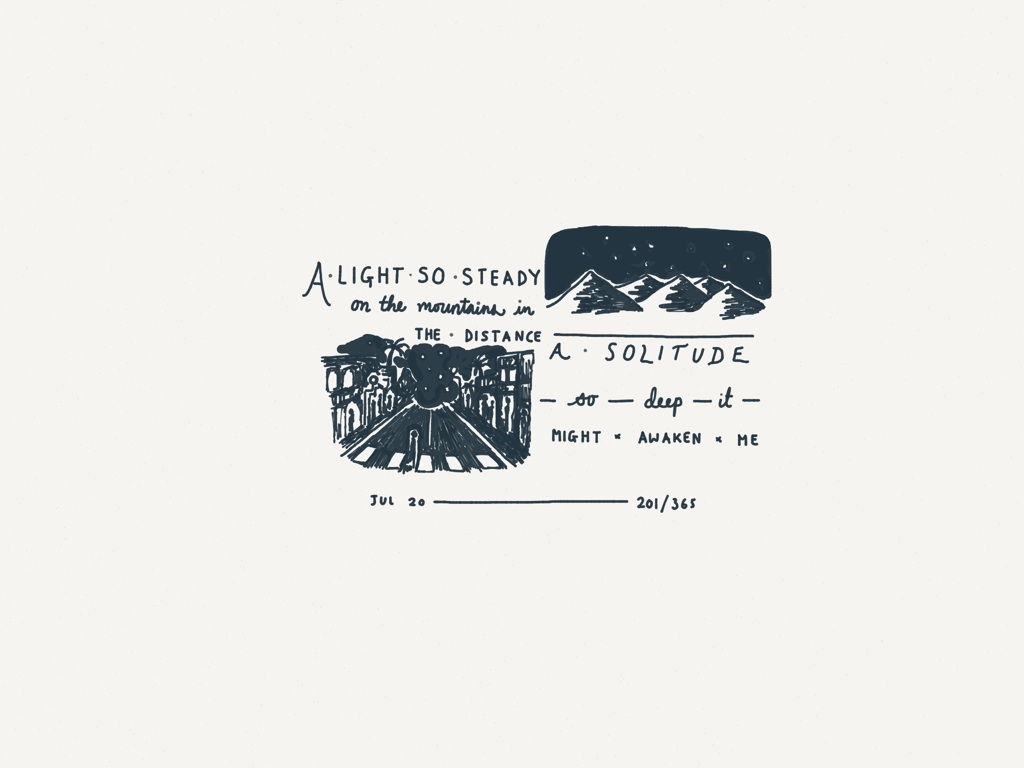 A·LIGHT·SO·STEADY
on the mountains in
THE · DISTANCE
A · SOLITUDE
— so — deep — it —
MIGHT × AWAKEN × ME
JUL 20 — 201/365